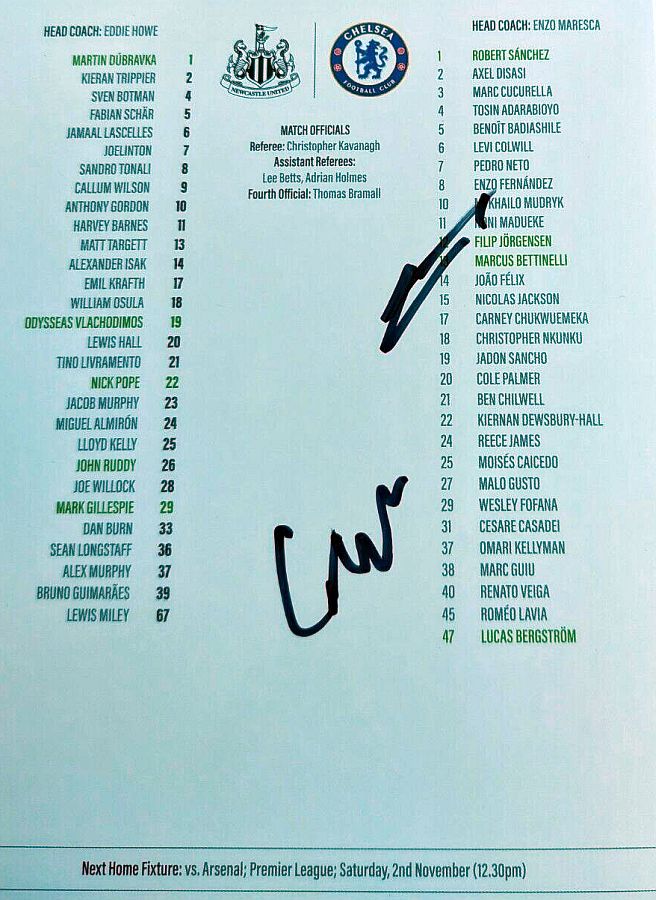 HEAD COACH: EDDIE HOWE
MARTIN DÚBRAVKA 1
KIERAN TRIPPIER 2
SVEN BOTMAN 4
FABIAN SCHÄR 5
JAMAAL LASCELLES 6
JOELINTON 7
SANDRO TONALI 8
CALLUM WILSON 9
ANTHONY GORDON 10
HARVEY BARNES 11
MATT TARGETT 13
ALEXANDER ISAK 14
EMIL KRAFTH 17
WILLIAM OSULA 18
ODYSSEAS VLACHODIMOS 19
LEWIS HALL 20
TINO LIVRAMENTO 21
NICK POPE 22
JACOB MURPHY 23
MIGUEL ALMIRÓN 24
LLOYD KELLY 25
JOHN RUDDY 26
JOE WILLOCK 28
MARK GILLESPIE 29
DAN BURN 33
SEAN LONGSTAFF 36
ALEX MURPHY 37
BRUNO GUIMARÃES 39
LEWIS MILEY 67
NEWCASTLE UNITED
CHELSEA
FOOTBALL CLUB
MATCH OFFICIALS
Referee: Christopher Kavanagh
Assistant Referees:
Lee Betts, Adrian Holmes
Fourth Official: Thomas Bramall
HEAD COACH: ENZO MARESCA
1 ROBERT SÁNCHEZ
2 AXEL DISASI
3 MARC CUCURELLA
4 TOSIN ADARABIOYO
5 BENOÎT BADIASHILE
6 LEVI COLWILL
7 PEDRO NETO
8 ENZO FERNÁNDEZ
10 MUDRYK
11 MADUEKE
FILIP JÖRGENSEN
MARCUS BETTINELLI
14 JOÃO FÉLIX
15 NICOLAS JACKSON
17 CARNEY CHUKWUEMEKA
18 CHRISTOPHER NKUNKU
19 JADON SANCHO
20 COLE PALMER
21 BEN CHILWELL
22 KIERNAN DEWSBURY-HALL
24 REECE JAMES
25 MOISÉS CAICEDO
27 MALO GUSTO
29 WESLEY FOFANA
31 CESARE CASADEI
37 OMARI KELLYMAN
38 MARC GUIU
40 RENATO VEIGA
45 ROMÉO LAVIA
47 LUCAS BERGSTRÖM
Next Home Fixture: vs. Arsenal; Premier League; Saturday, 2nd November (12.30pm)